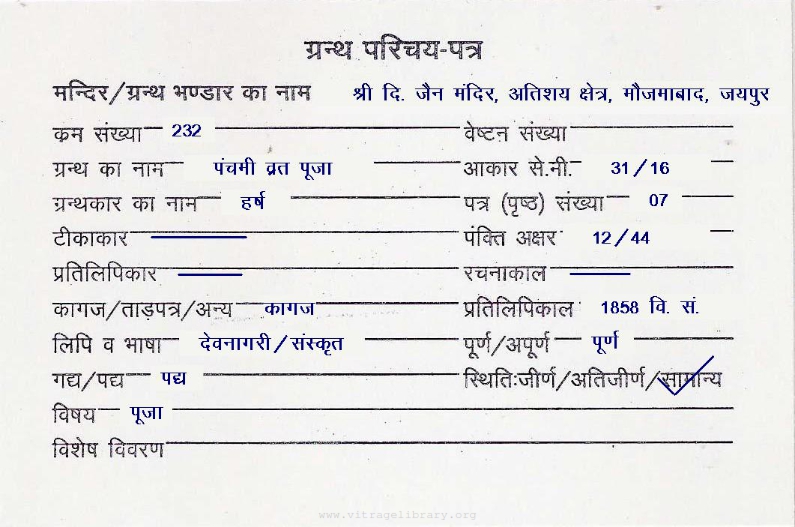 ग्रन्थ परिचय-पत्र
मन्दिर/ग्रन्थ भण्डार का नाम श्री दि. जैन मंदिर, अतिशय क्षेत्र, मौजमाबाद, जयपुर
कम संख्या 232 वेष्टन संख्या
ग्रन्थ का नाम पंचमी व्रत पूजा आकार से.नी. 31/16
ग्रन्थकार का नाम हर्ष पत्र (पृष्ठ) संख्या 07
टीकाकार पंक्ति अक्षर 12/44
प्रतिलिपिकार रचनाकाल
कागज/ताड़पत्र/अन्य कागज प्रतिलिपिकाल 1858 वि. सं.
लिपि व भाषा देवनागरी/संस्कृत पूर्ण/अपूर्ण पूर्ण
गद्य/पद्य पद्य स्थितिःजीर्ण/अतिजीर्ण/सामान्य
विषय पूजा
विशेष विवरण
www.vitragelibrary.org